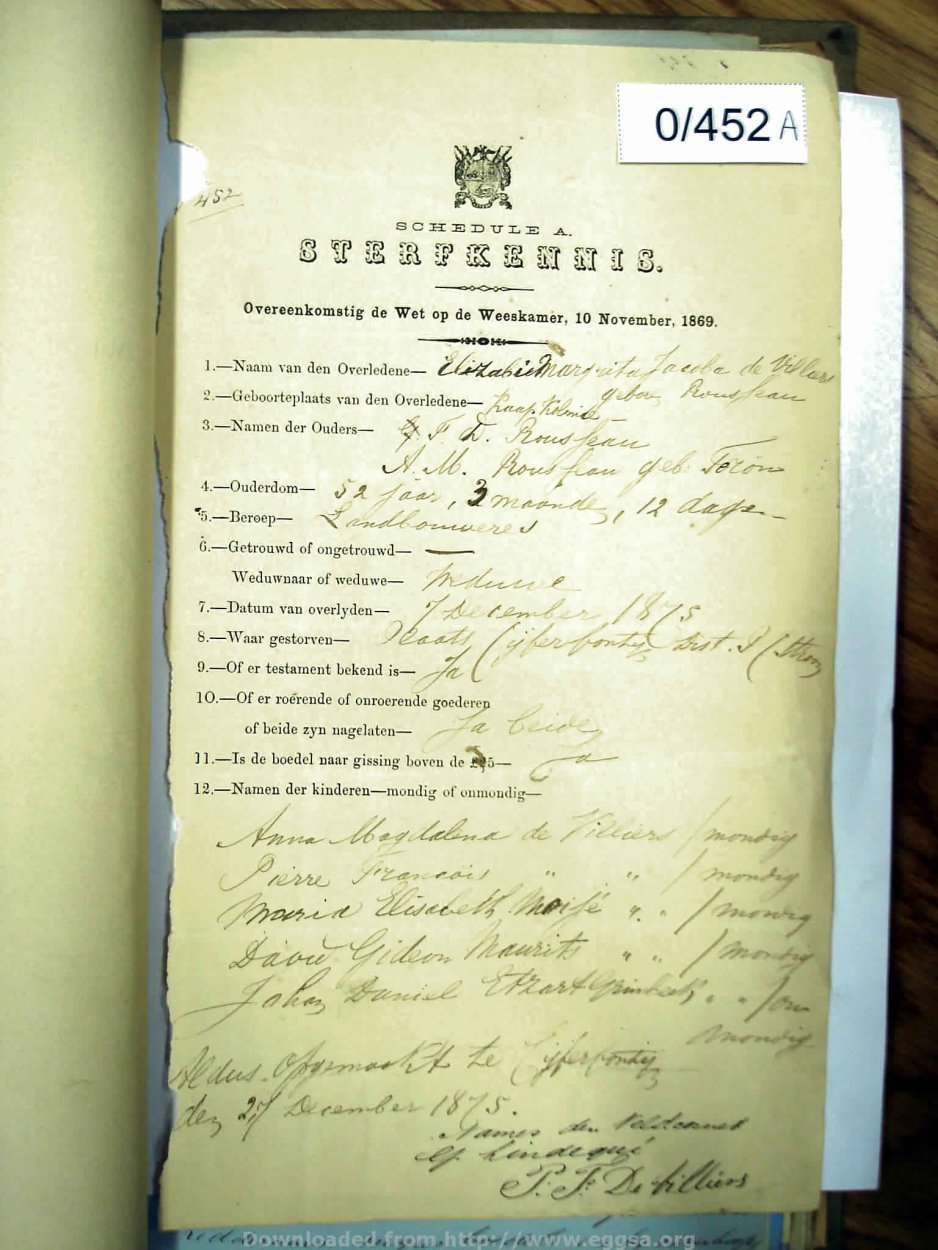 0/452 A
452
SCHEDULE A.
STERFKENNIS.
Overeenkomstig de Wet op de Weeskamer, 10 November, 1869.
1.—Naam van den Overledene— Elizabeth Margrita Jacoba de Villiers
gebore Rousseau
2.—Geboorteplaats van den Overledene— Kaap Kolonie
3.—Namen der Ouders— F. D. Rousseau
A. M. Rousseau geb. Teron
4.—Ouderdom— 52 jaar, 3 maanden, 12 dage
5.—Beroep— Landbouweres
6.—Getrouwd of ongetrouwd— —
Weduwnaar of weduwe— Weduwe
7.—Datum van overlyden— 7 December 1875
8.—Waar gestorven— Plaats Cijferfontijn Dist. P/Stroom
9.—Of er testament bekend is— Ja
10.—Of er roérende of onroerende goederen
of beide zyn nagelaten— Ja beide
11.—Is de boedel naar gissing boven de £25— Ja
12.—Namen der kinderen—mondig of onmondig—
Anna Magdalena de Villiers / mondig
Pierre Francois " " / mondig
Maria Elisabeth " " / mondig
David Gideon Maurits " " / mondig
Johan Daniel " " / on
mondig
Aldus Opgemaakt te Cijferfontijn
den 27 December 1875.
Names den Veldcornet
Lindeque
P. F. De Villiers
Downloaded from http://www.eggsa.org